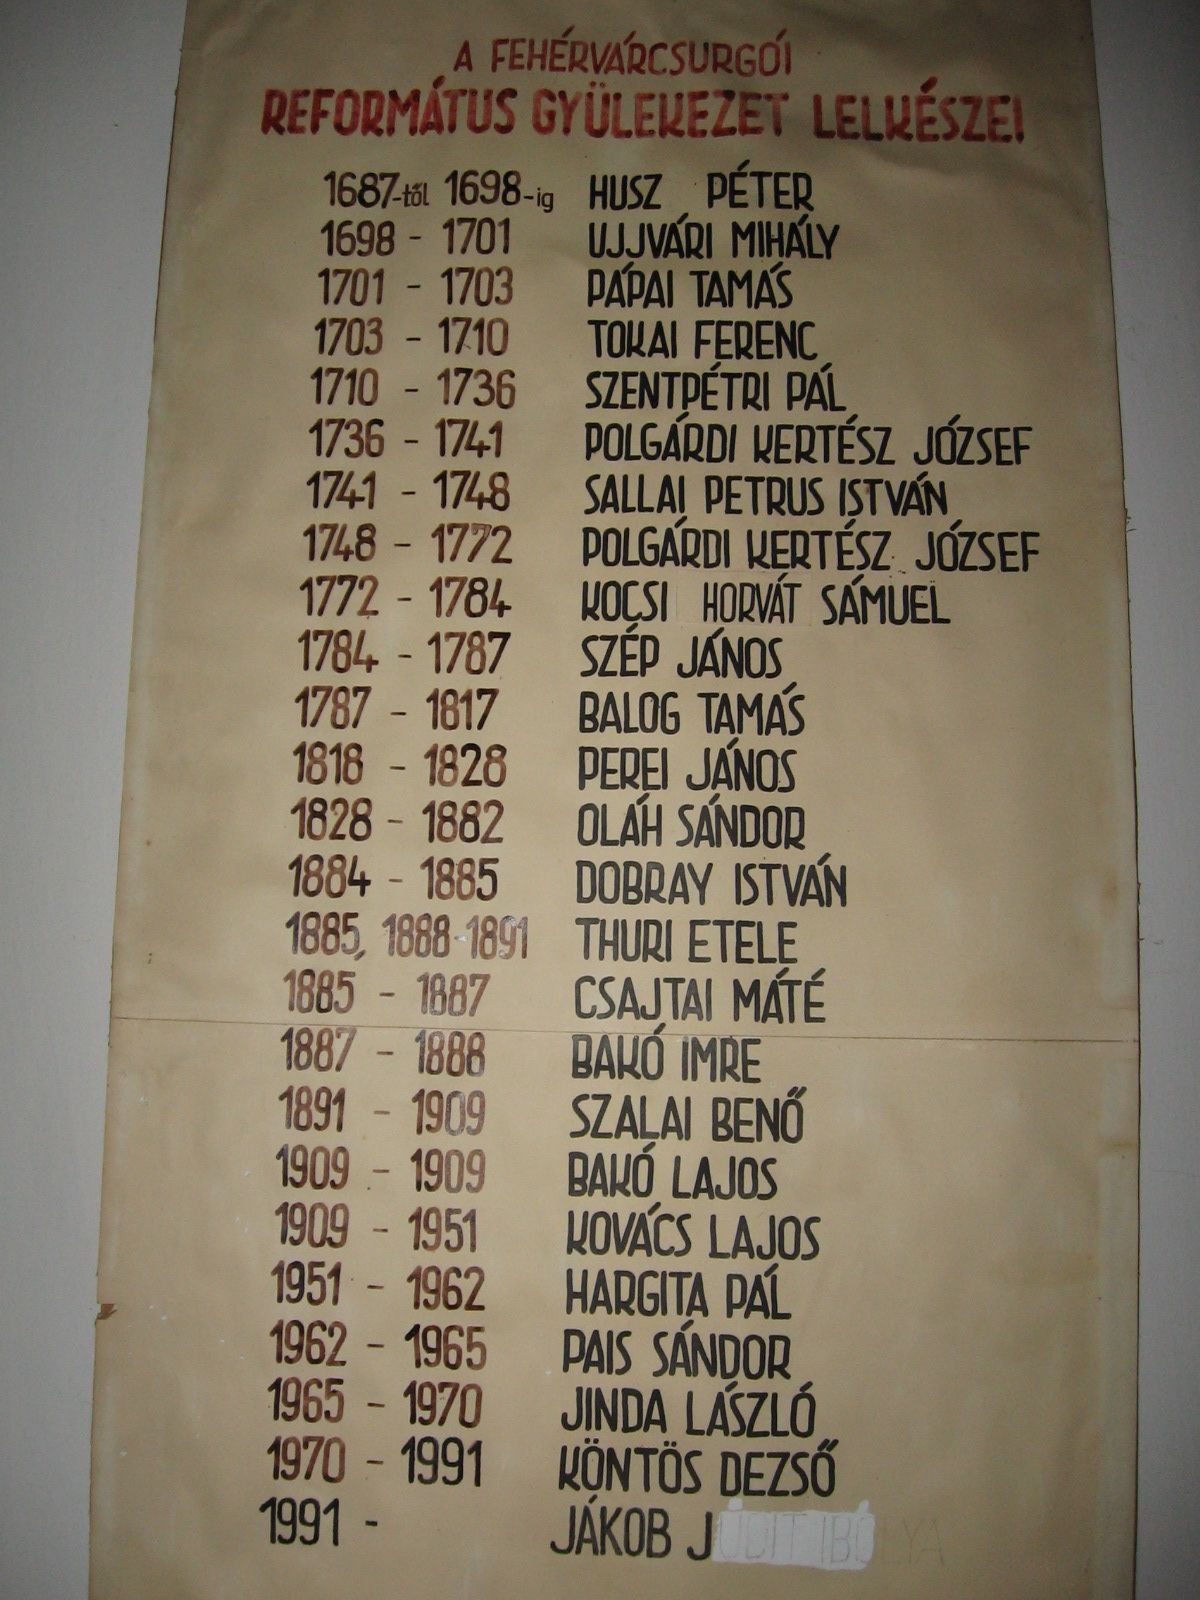 A FEHÉRVÁRCSURGÓI
REFORMÁTUS GYÜLEKEZET LELKÉSZEI
1687-től 1698-ig HUSZ PÉTER
1698 - 1701 UJJVÁRI MIHÁLY
1701 - 1703 PÁPAI TAMÁS
1703 - 1710 TOKAI FERENC
1710 - 1736 SZENTPÉTRI PÁL
1736 - 1741 POLGÁRDI KERTÉSZ JÓZSEF
1741 - 1748 SALLAI PETRUS ISTVÁN
1748 - 1772 POLGÁRDI KERTÉSZ JÓZSEF
1772 - 1784 KOCSI HORVÁT SÁMUEL
1784 - 1787 SZÉP JÁNOS
1787 - 1817 BALOG TAMÁS
1818 - 1828 PEREI JÁNOS
1828 - 1882 OLÁH SÁNDOR
1884 - 1885 DOBRAY ISTVÁN
1885, 1888-1891 THURI ETELE
1885 - 1887 CSAJTAI MÁTÉ
1887 - 1888 BAKÓ IMRE
1891 - 1909 SZALAI BENŐ
1909 - 1909 BAKÓ LAJOS
1909 - 1951 KOVÁCS LAJOS
1951 - 1962 HARGITA PÁL
1962 - 1965 PAIS SÁNDOR
1965 - 1970 JINDA LÁSZLÓ
1970 - 1991 KÖNTÖS DEZSŐ
1991 - JÁKOB JUDIT IBOLYA